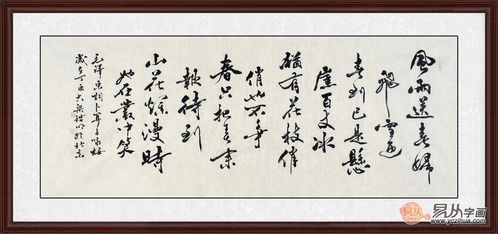 風雨送春歸
飛雪迎
春到已是懸
崖百丈冰
猶有花枝俏
俏也不爭
春只把春來
報待到
山花爛漫時
她在叢中笑
毛澤東詞卜算子咏梅
歲在丁酉 於北京
易从字画
www.yczihua.com